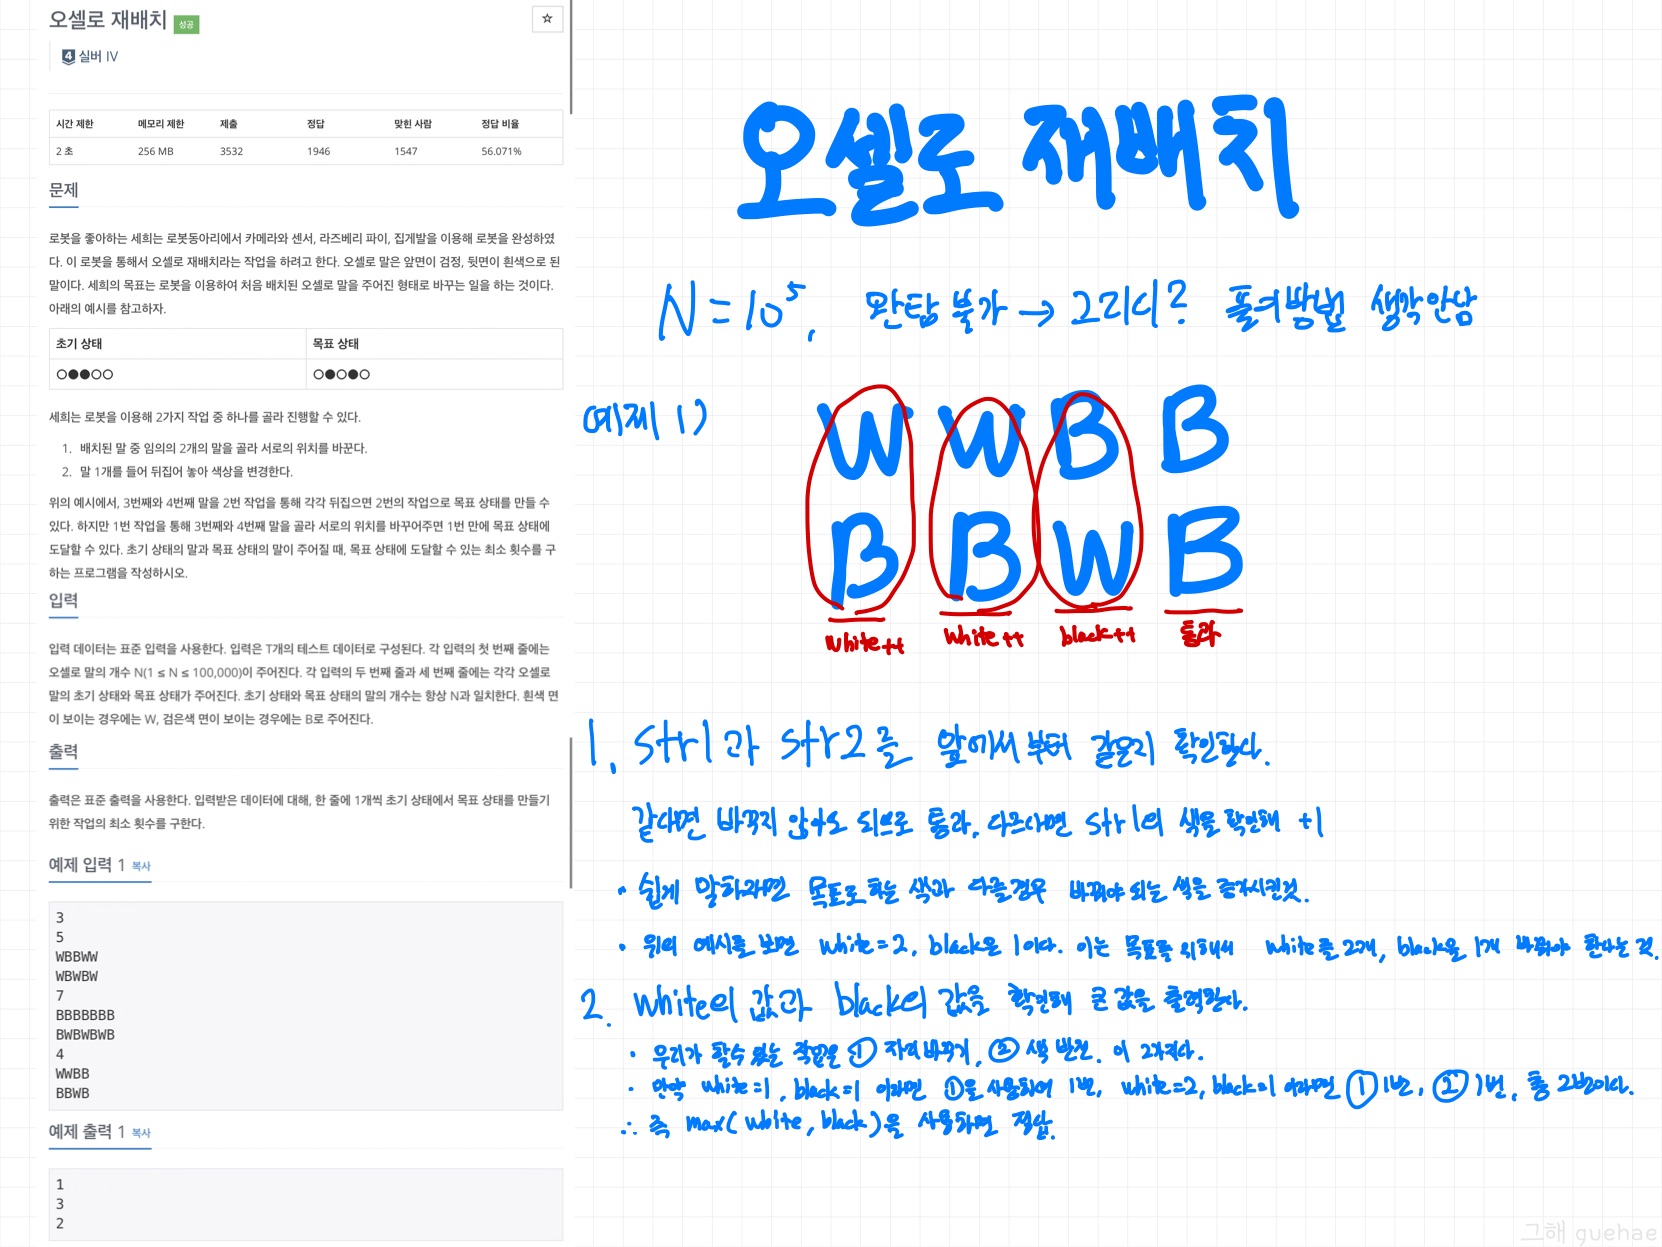 오셀로 재배치 성공
☆
4 실버 IV
시간 제한 메모리 제한 제출 정답 맞힌 사람 정답 비율
2 초 256 MB 3532 1946 1547 56.071%
문제
로봇을 좋아하는 세희는 로봇동아리에서 카메라와 센서, 라즈베리 파이, 집게발을 이용해 로봇을 완성하였
다. 이 로봇을 통해서 오셀로 재배치라는 작업을 하려고 한다. 오셀로 말은 앞면이 검정, 뒷면이 흰색으로 된
말이다. 세희의 목표는 로봇을 이용하여 처음 배치된 오셀로 말을 주어진 형태로 바꾸는 일을 하는 것이다.
아래의 예시를 참고하자.
초기 상태 목표 상태
○●●○○ ○●○●○
세희는 로봇을 이용해 2가지 작업 중 하나를 골라 진행할 수 있다.
1. 배치된 말 중 임의의 2개의 말을 골라 서로의 위치를 바꾼다.
2. 말 1개를 들어 뒤집어 놓아 색상을 변경한다.
위의 예시에서, 3번째와 4번째 말을 2번 작업을 통해 각각 뒤집으면 2번의 작업으로 목표 상태를 만들 수
있다. 하지만 1번 작업을 통해 3번째와 4번째 말을 골라 서로의 위치를 바꾸어주면 1번 만에 목표 상태에
도달할 수 있다. 초기 상태의 말과 목표 상태의 말이 주어질 때, 목표 상태에 도달할 수 있는 최소 횟수를 구
하는 프로그램을 작성하시오.
입력
입력 데이터는 표준 입력을 사용한다. 입력은 T개의 테스트 데이터로 구성된다. 각 입력의 첫 번째 줄에는
오셀로 말의 개수 N(1 ≤ N ≤ 100,000)이 주어진다. 각 입력의 두 번째 줄과 세 번째 줄에는 각각 오셀로
말의 초기 상태와 목표 상태가 주어진다. 초기 상태와 목표 상태의 말의 개수는 항상 N과 일치한다. 흰색 면
이 보이는 경우에는 W, 검은색 면이 보이는 경우에는 B로 주어진다.
출력
출력은 표준 출력을 사용한다. 입력받은 데이터에 대해, 한 줄에 1개씩 초기 상태에서 목표 상태를 만들기
위한 작업의 최소 횟수를 구한다.
예제 입력 1 복사
3
5
WBBWW
WBWBW
7
BBBBBBB
BWBWBWB
4
WWBB
BBWB
예제 출력 1 복사
1
3
2
오셀로 재배치
N = 10⁵, 완탐 불가 → 그리디? 풀이방법 생각안남
예제 1)
W W B B
B B W B
white++ white++ black++ 통과
1. str1과 str2를 앞에서부터 같은지 확인한다.
같다면 바꾸지 않아도 되므로 통과, 다르다면 str1의 색을 확인해 +1
• 쉽게 말하자면 목표로 하는 색과 다를경우 바꿔야 되는 색을 증가시킨것.
• 위의 예시를 보면 white=2, black은 1이다. 이는 목표를 위해서 white를 2개, black을 1개 바꿔야 한다는 것.
2. white의 값과 black의 값을 확인해 큰 값을 출력한다.
• 우리가 할수 있는 작업은 ① 자리바꾸기, ② 색 반전. 이 2가지다.
• 만약 white=1, black=1 이라면 ①을 사용하여 1번, white=2, black=1 이라면 ① 1번, ② 1번, 총 2번이다.
∴ 즉 max(white, black)을 사용하면 정답.
그해 guehae